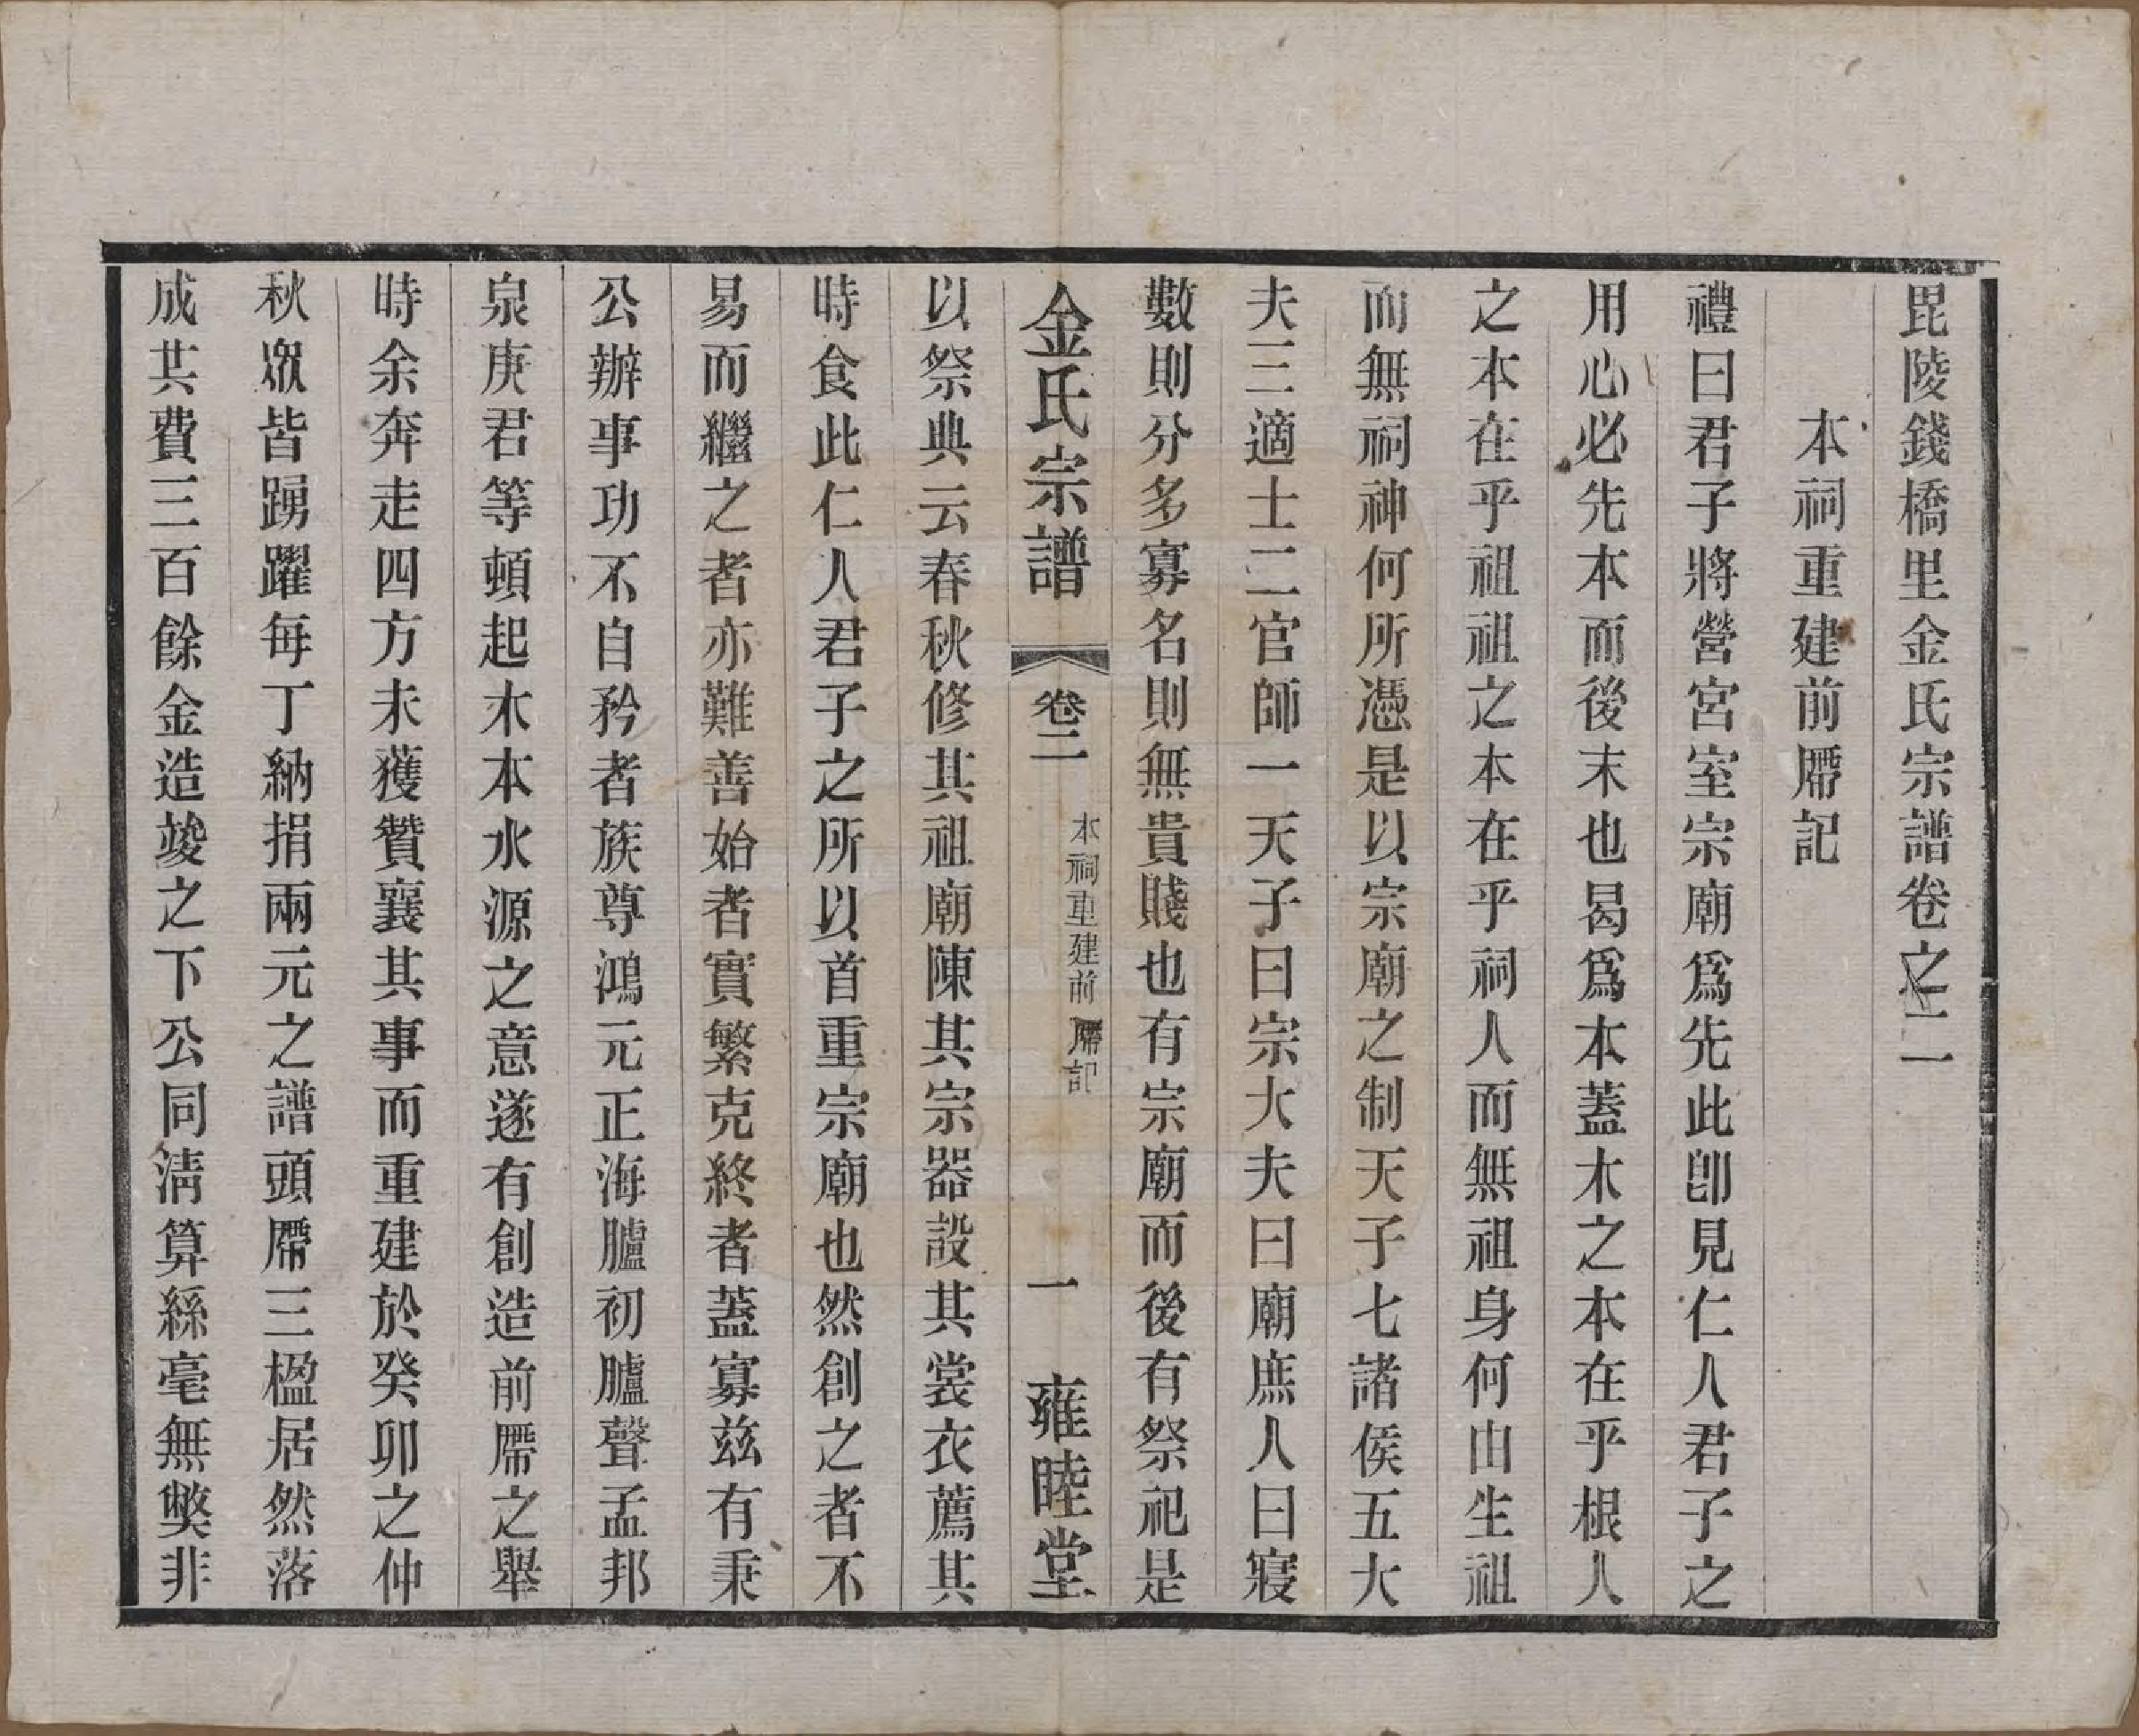 毘陵錢橋里金氏宗譜卷之二
本祠重建前厛記
禮曰君子將營宮室宗廟爲先此卽見仁人君子之
用心必先本而後末也曷爲本蓋木之本在乎根人
之本在乎祖祖之本在乎祠人而無祖身何由生祖
而無祠神何所憑是以宗廟之制天子七諸侯五大
夫三適士二官師一天子曰宗大夫曰廟庶人曰寢
數則分多寡名則無貴賤也有宗廟而後有祭祀是
金氏宗譜 卷二 本祠重建前厛記 一 雍睦堂
以祭典云春秋修其祖廟陳其宗器設其裳衣薦其
時食此仁人君子之所以首重宗廟也然創之者不
易而繼之者亦難善始者實繁克終者蓋寡茲有秉
公辦事功不自矜者族尊鴻元正海臚初臚聲孟邦
泉庚君等頓起木本水源之意遂有創造前厛之舉
時余奔走四方未獲贊襄其事而重建於癸卯之仲
秋眾皆踴躍每丁納捐兩元之譜頭厛三楹居然落
成共費三百餘金造竣之下公同淸算絲毫無弊非